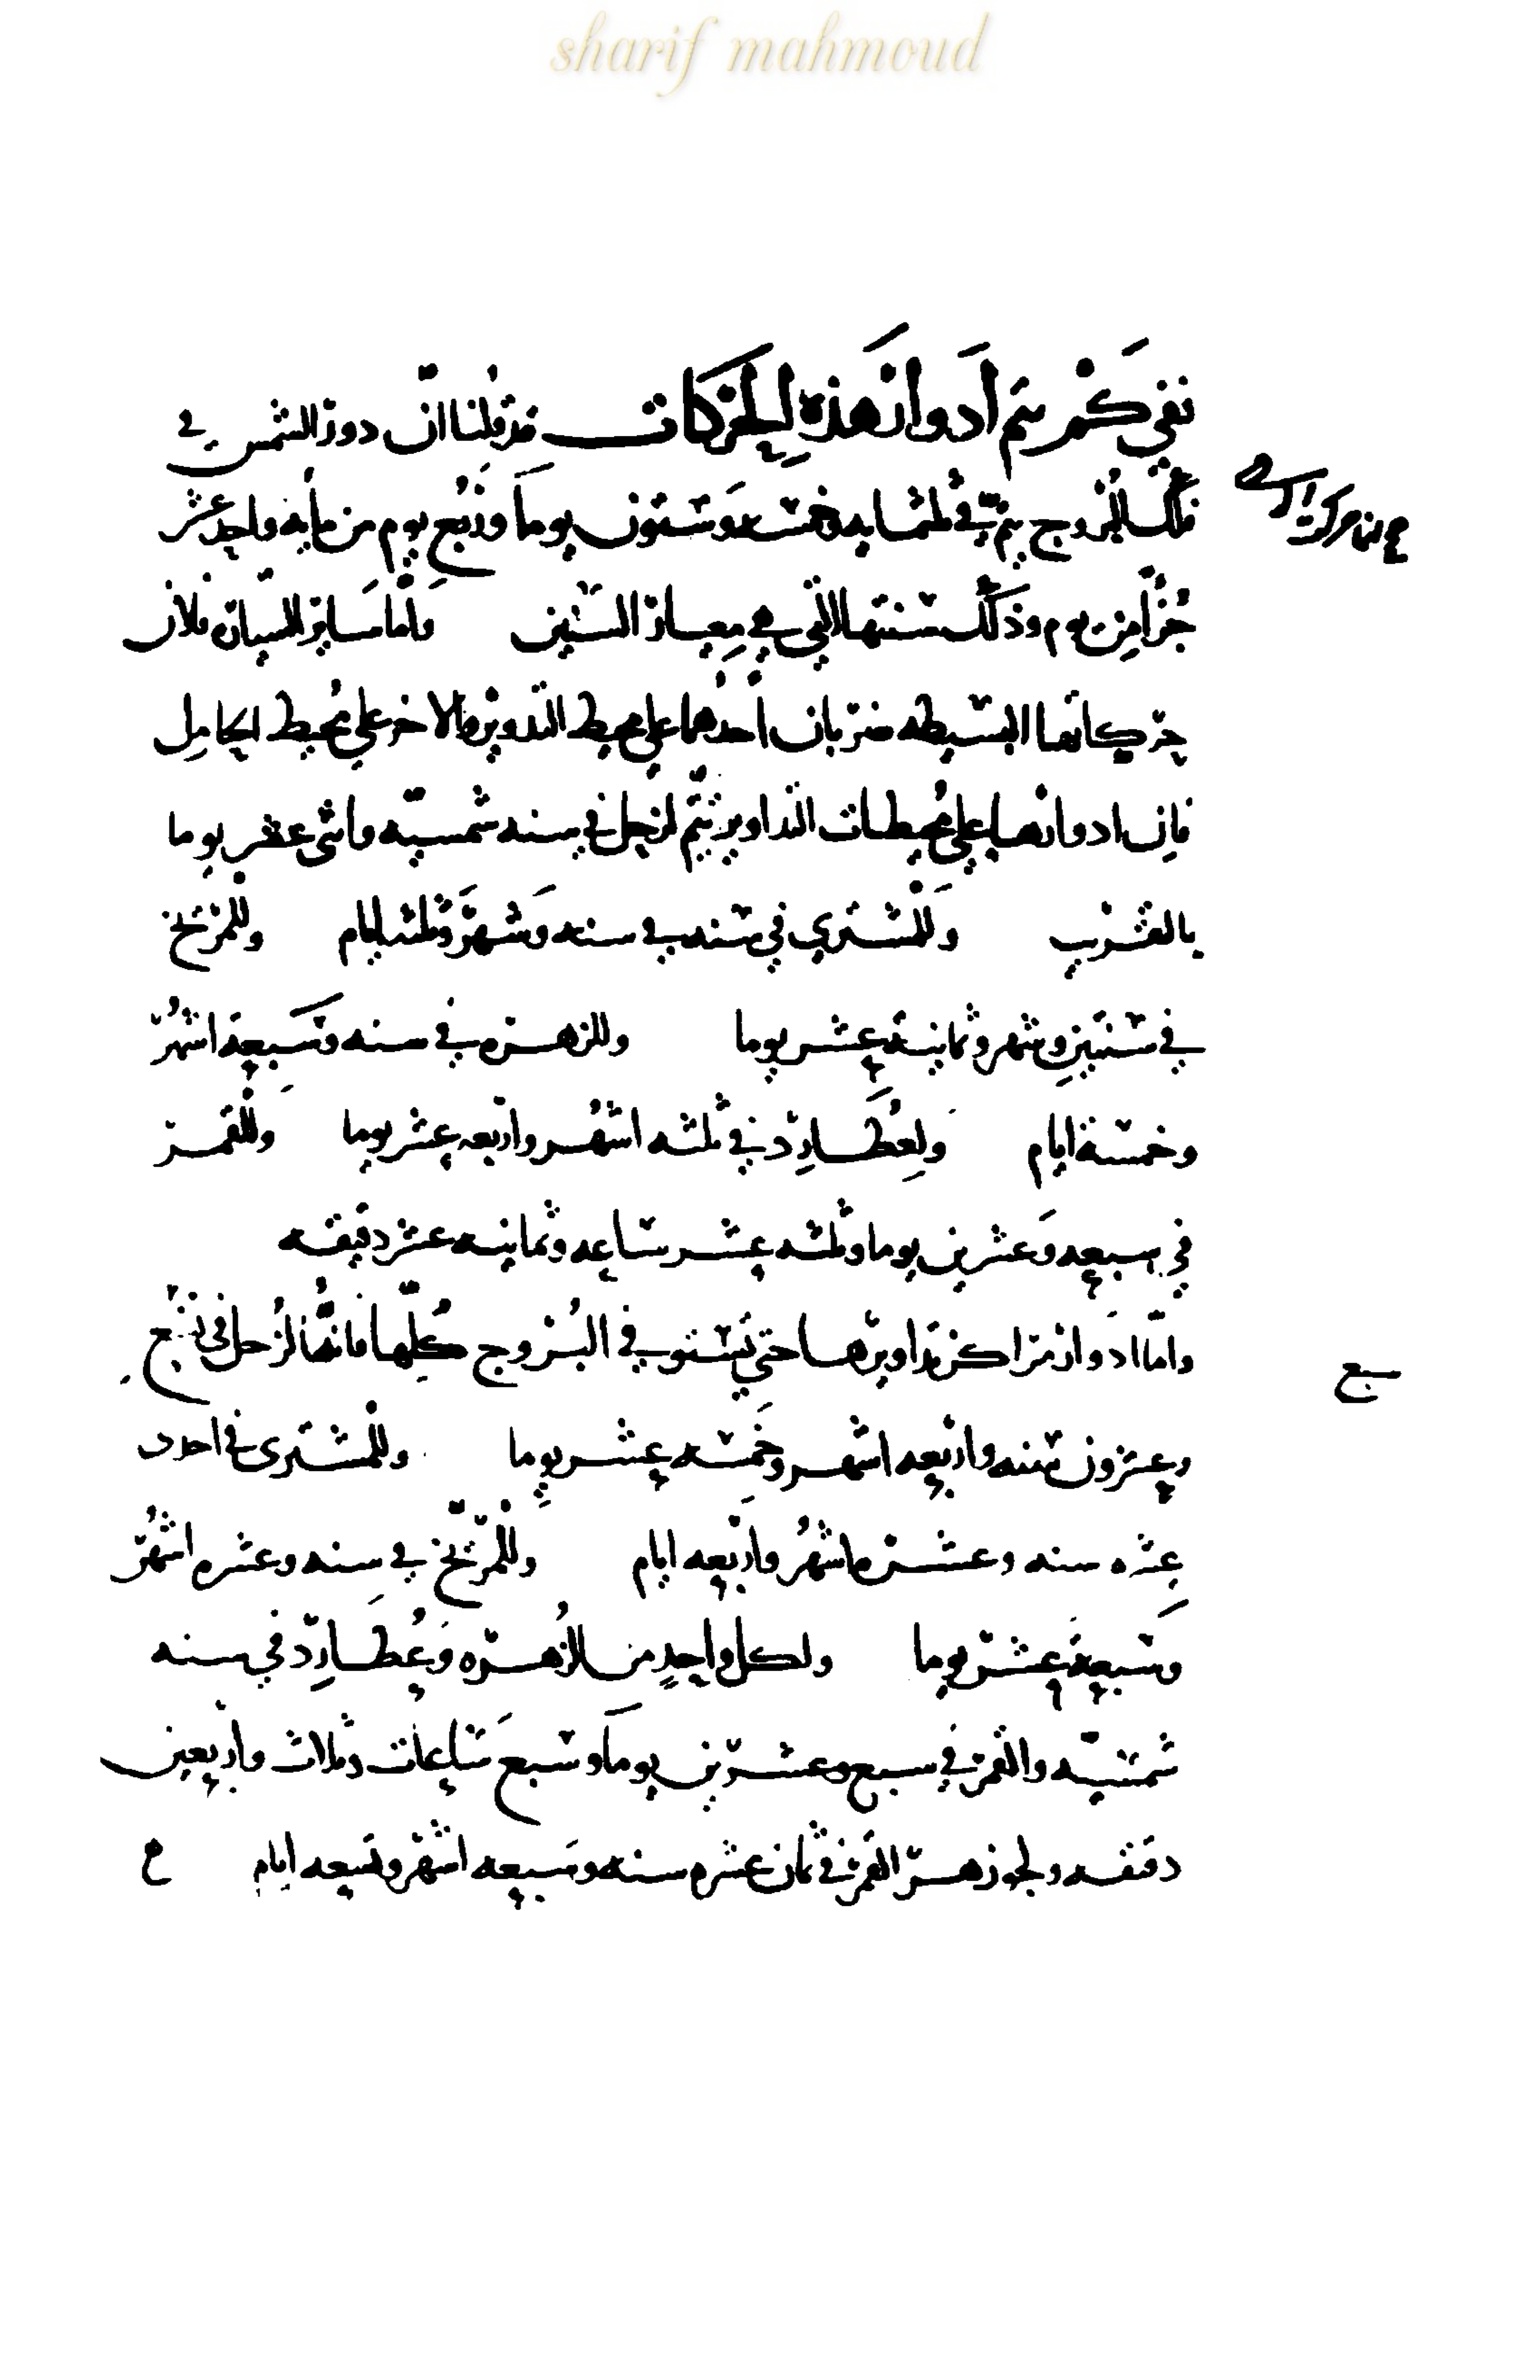 sharif mahmoud
ففي كم تتم ادوار هذه الحركات قد قلنا ان دور الشمس في
فلك البروج يتم في ثلثمايه وخمسه وستون يوما وربع يوم من مايه واحد عشر
جزًا من يوم وذلك سنتها التي هي معيار السنين واما ساير السياره فلان
حركاتها البسيطه ضربان احدهما على محيط التدوير والاخر على محيط الحامل
فان ادوارها على محيطات التداوير تتم لزحل في سنه شمسيه واثنى عشر يوما
بالتقريب وللمشتري في سنه وشهر وثلثه ايام وللمريخ
في سنتين وشهر وثمانية عشر يوما وللزهره في سنه وسبعة اشهر
وخمسة ايام ولعطارد في ثلثه اشهر واربعه عشر يوما وللقمر
في سبعه وعشرين يوما وثلثه عشر ساعه وثمانيه عشر دقيقه
واما ادوار مراكز تداويرها حتى تستوي في البروج كلها فانها لزحل في تسع
وعشرون سنه واربعه اشهر وخمسه عشر يوما وللمشترى في احدى
عشره سنه وعشره اشهر واربعه ايام وللمريخ في سنه وعشره اشهر
وسبعة عشر يوما ولكل واحد من الزهره وعطارد في سنه
شمسيه والقمر في سبع وعشرين يوما وسبع ساعات وثلاث واربعين
دقيقه ولجوزهر القمر في ثمان عشره سنه وسبعه اشهر وتسعه ايام
سبع